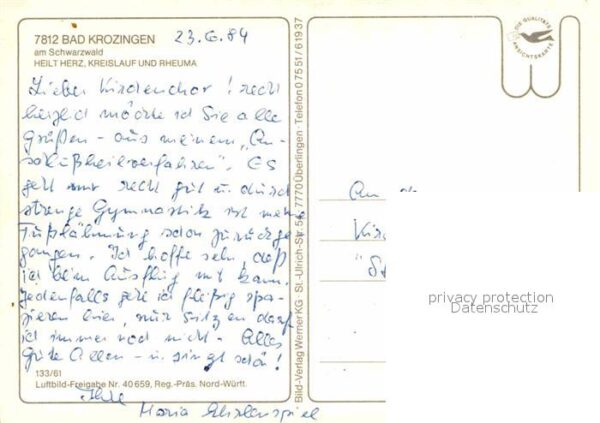 7812 BAD KROZINGEN
am Schwarzwald
HEILT HERZ, KREISLAUF UND RHEUMA
23.6.84
Lieber Kirchenchor! recht
herzlich möchte ich Sie alle
Grüßen - aus meinem "An-
schlußheilverfahren". Es
geht mir recht gut u. durch
strenge Gymnastik ist meine
Fußlähmung schon zurückge-
gangen. Ich hoffe sehr, daß
ich beim Ausflug mit kann.
Jedenfalls gehe ich fleißig spa-
zieren hier, nur sitzen darf
ich immer noch nicht - Alles
Gute Allen - u. singt schön!
Ihre
Maria
133/61
Luftbild-Freigabe Nr. 40 659, Reg.-Präs. Nord-Württ.
Bild-Verlag Werner KG · St.-Ulrich-Str. 5 · 7770 Überlingen · Telefon 0 75 51 / 6 19 37
DIE QUALITÄTS
ANSICHTSKARTE
An
privacy protection
Datenschutz